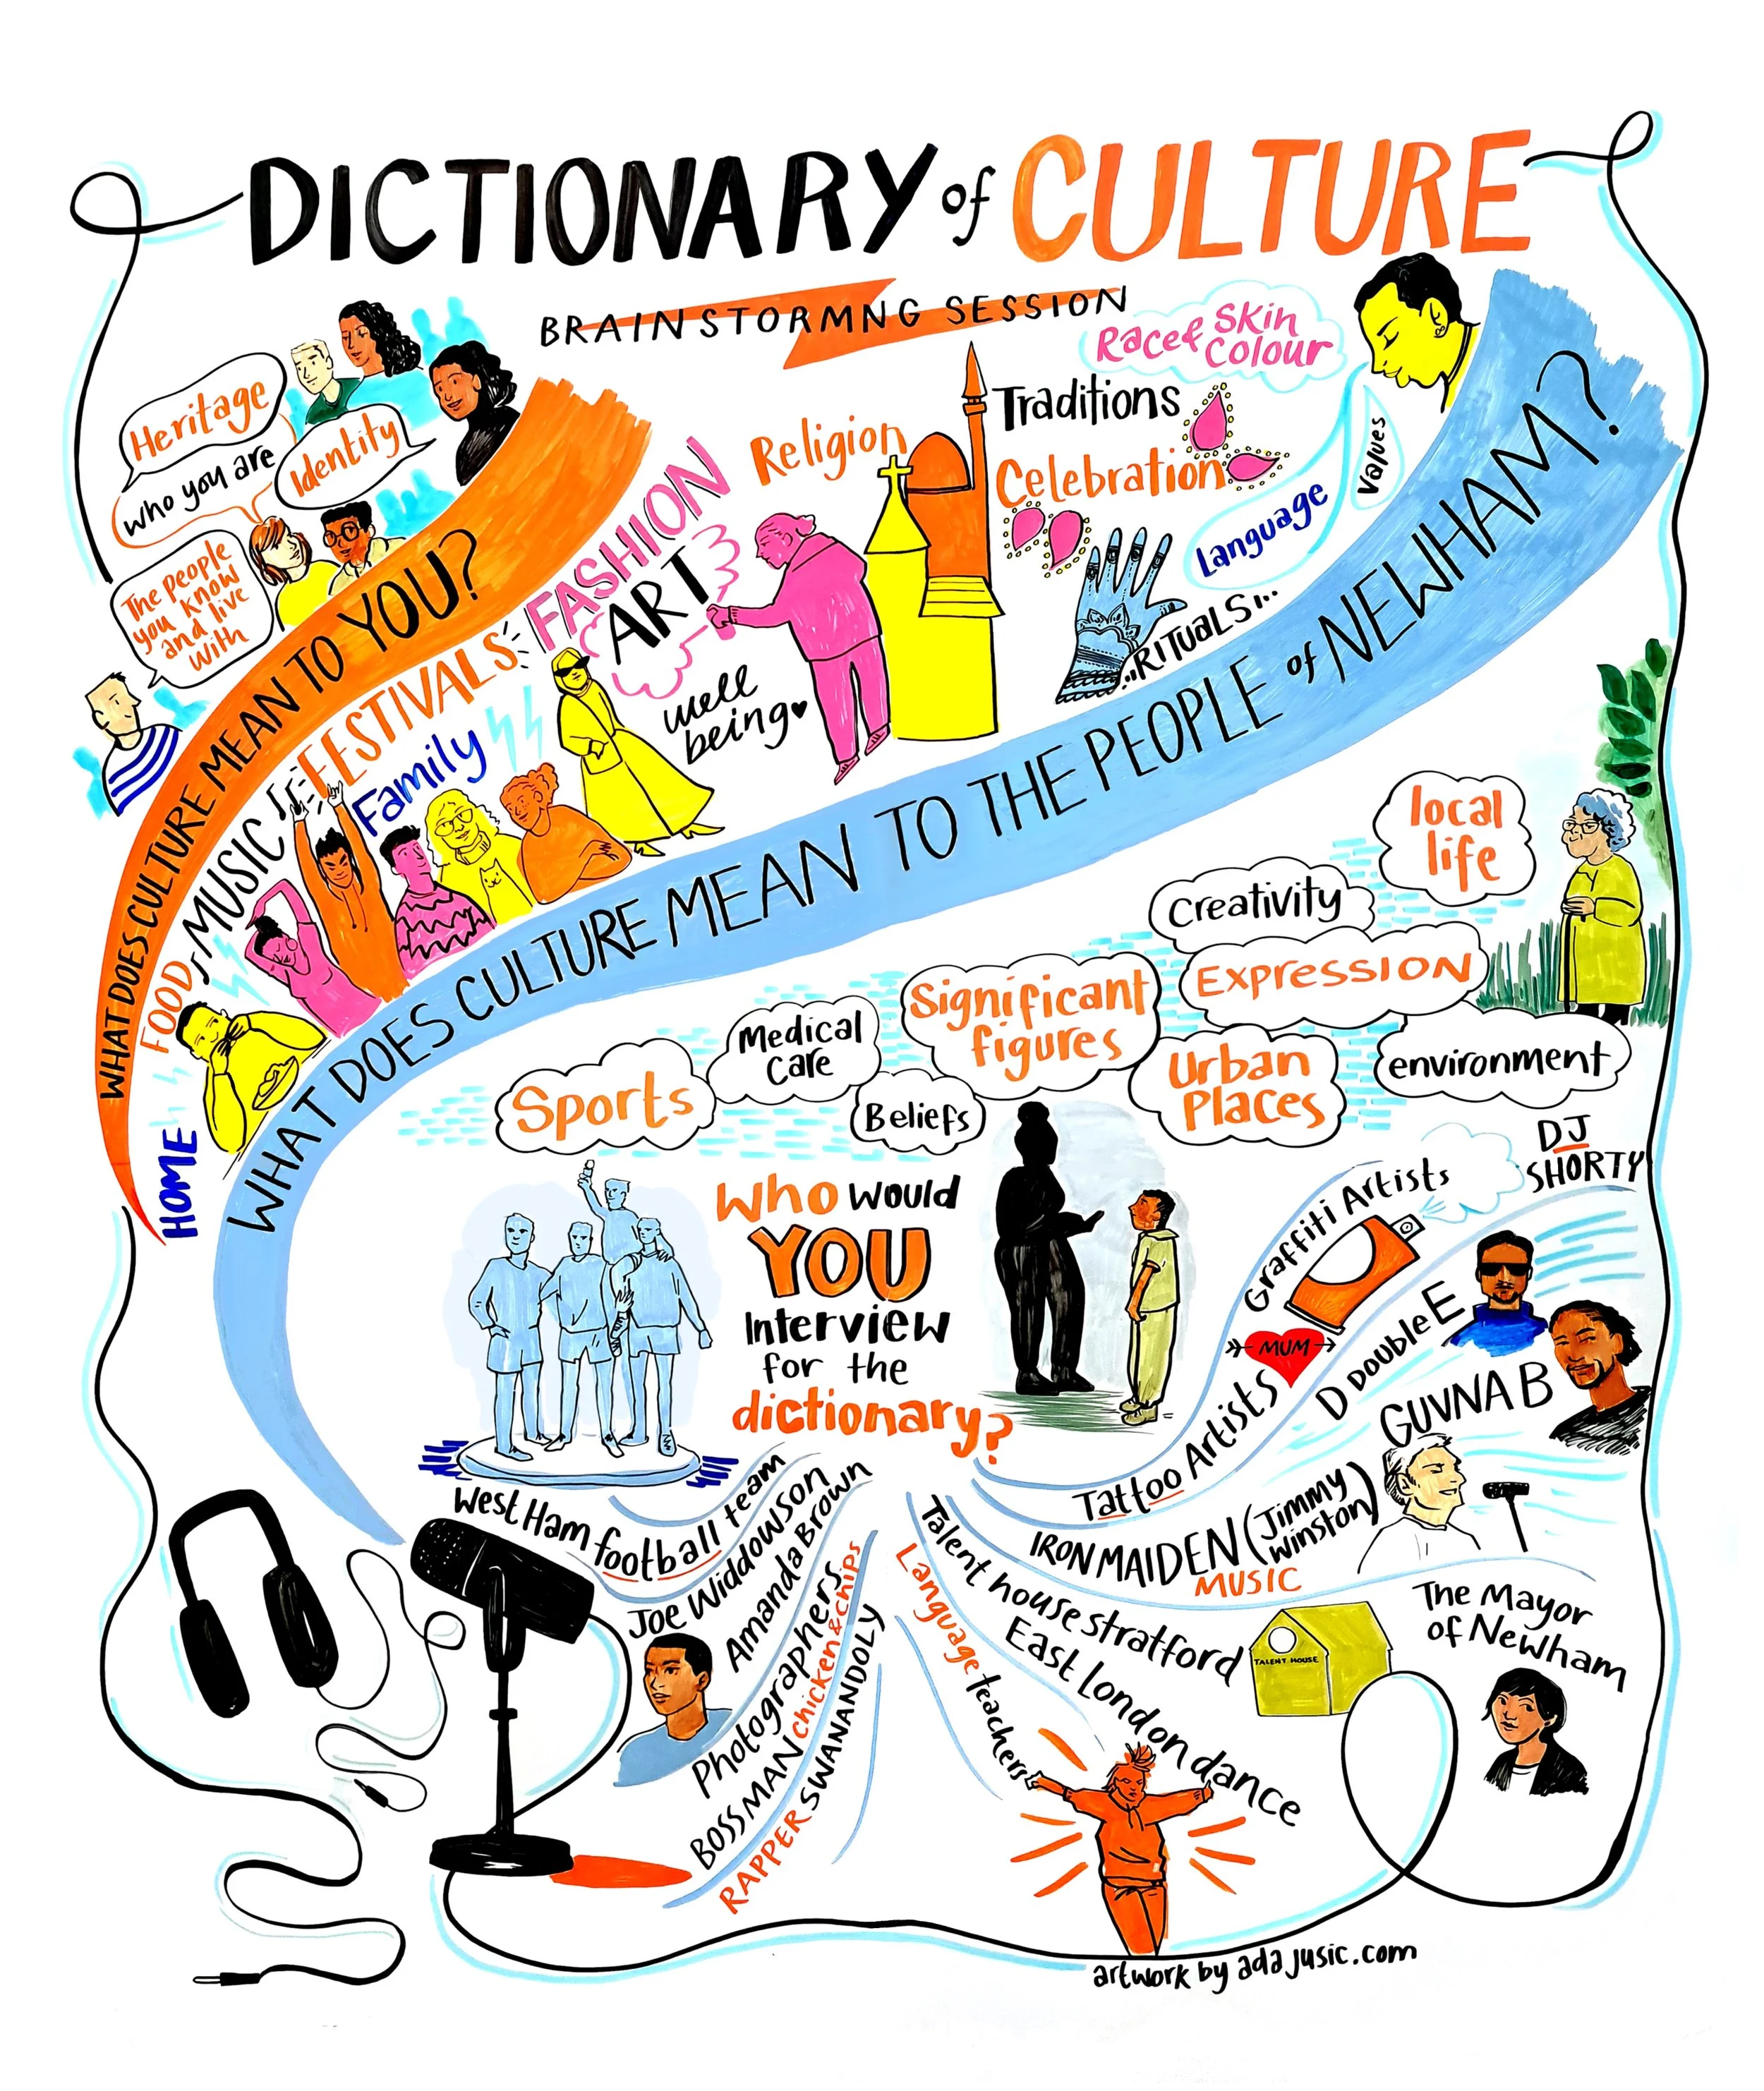 DICTIONARY of CULTURE
BRAINSTORMNG SESSION
Heritage
who you are
Identity
The people
you know
and live
with
WHAT DOES CULTURE MEAN TO YOU?
HOME
FOOD
MUSIC
FESTIVALS
Family
FASHION
ART
well
being
Religion
Traditions
Celebration
Race & Skin
Colour
Language
Values
..RITUALS...
WHAT DOES CULTURE MEAN TO THE PEOPLE of NEWHAM?
Sports
Medical
Care
Beliefs
Significant
figures
Creativity
Expression
Urban
Places
local
life
environment
Who would
YOU
Interview
for the
dictionary?
West Ham football team
Joe Widdowson
Amanda Brown
Photographers
BOSS MAN chicken & chips
RAPPER SWANANDOLY
Language teachers
Talent house stratford
TALENT HOUSE
East London dance
The Mayor
of Newham
IRON MAIDEN (Jimmy
Winston)
MUSIC
Tattoo Artists
MUM
Graffiti Artists
D Double E
GUVNA B
DJ
SHORTY
artwork by adajusic.com